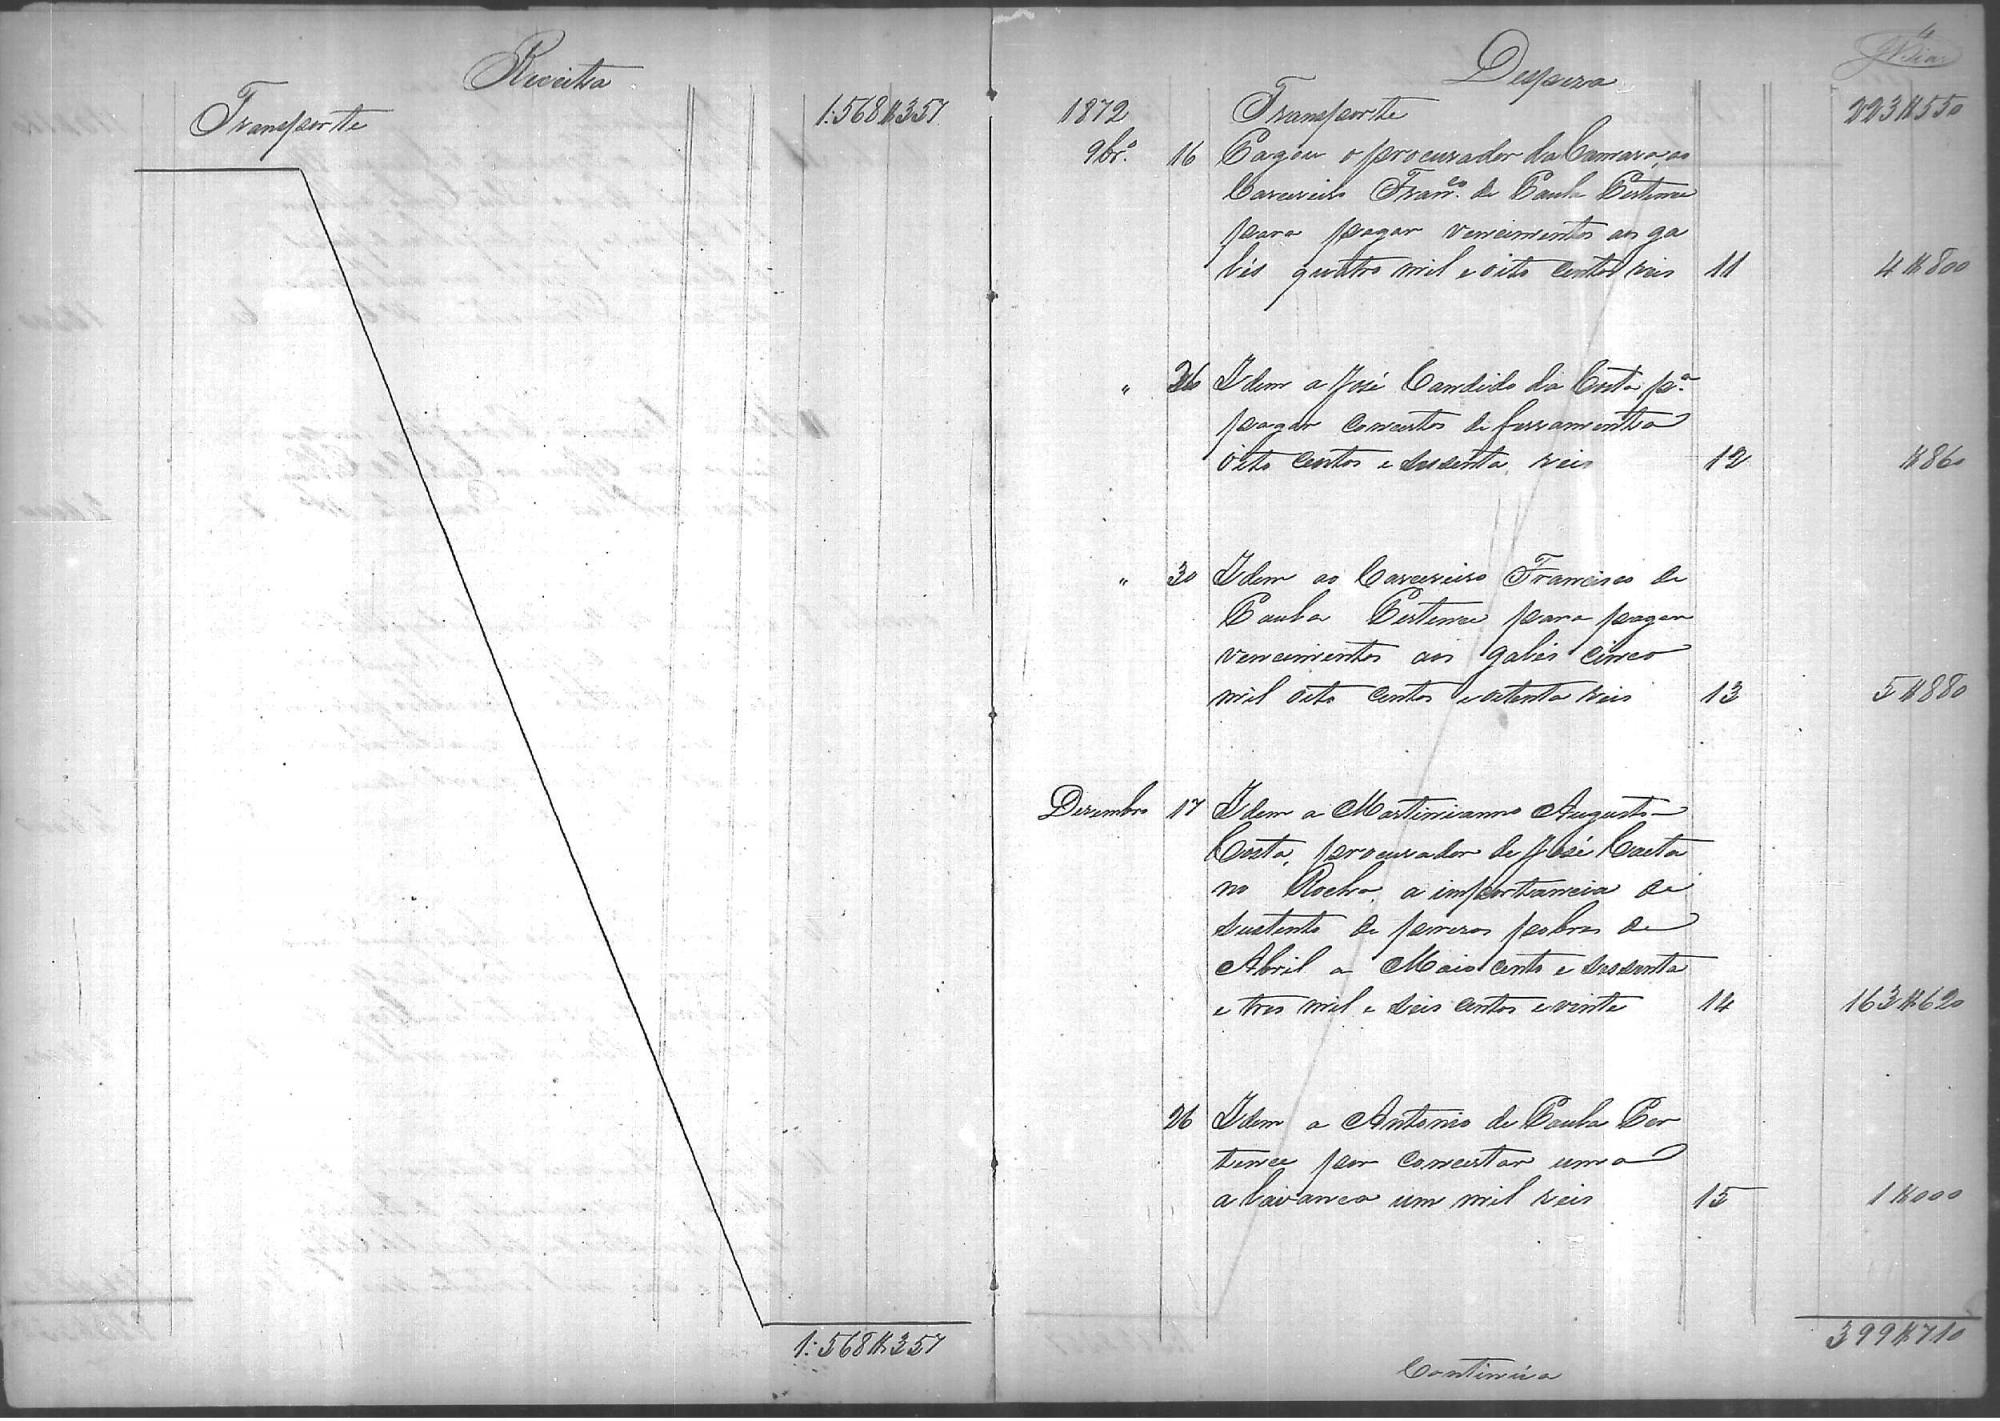 Receita
Transporte 1:568$357
1:568$357
4
Despeza
1872 Transporte 223$550
9br.o 16 Pagou o procurador da Camara, ao
Carcereiro Fran.co de Paula Pertence
para pagar vencimentos aos ga
lés quatro mil e oito centos reis 11 4$800
" 26 Idem a José Candido da Costa p.a
pagar concertos de ferramenta
oito centos e sessenta reis 12 $860
" 30 Idem ao Carcereiro Francisco de
Paula Pertence para pagar
vencimentos aos galés cinco
mil oito centos e oitenta reis 13 5$880
Dezembro 17 Idem a Martinianno Augusto
Costa, procurador de José Caeta
no Rocha, a importancia de
sustento de prezos pobres de
Abril a Maio cento e sessenta
e tres mil e seis centos e vinte 14 163$620
26 Idem a Antonio de Paula Per
tence por concertar uma
alavanca um mil reis 15 1$000
399$710
Continúa